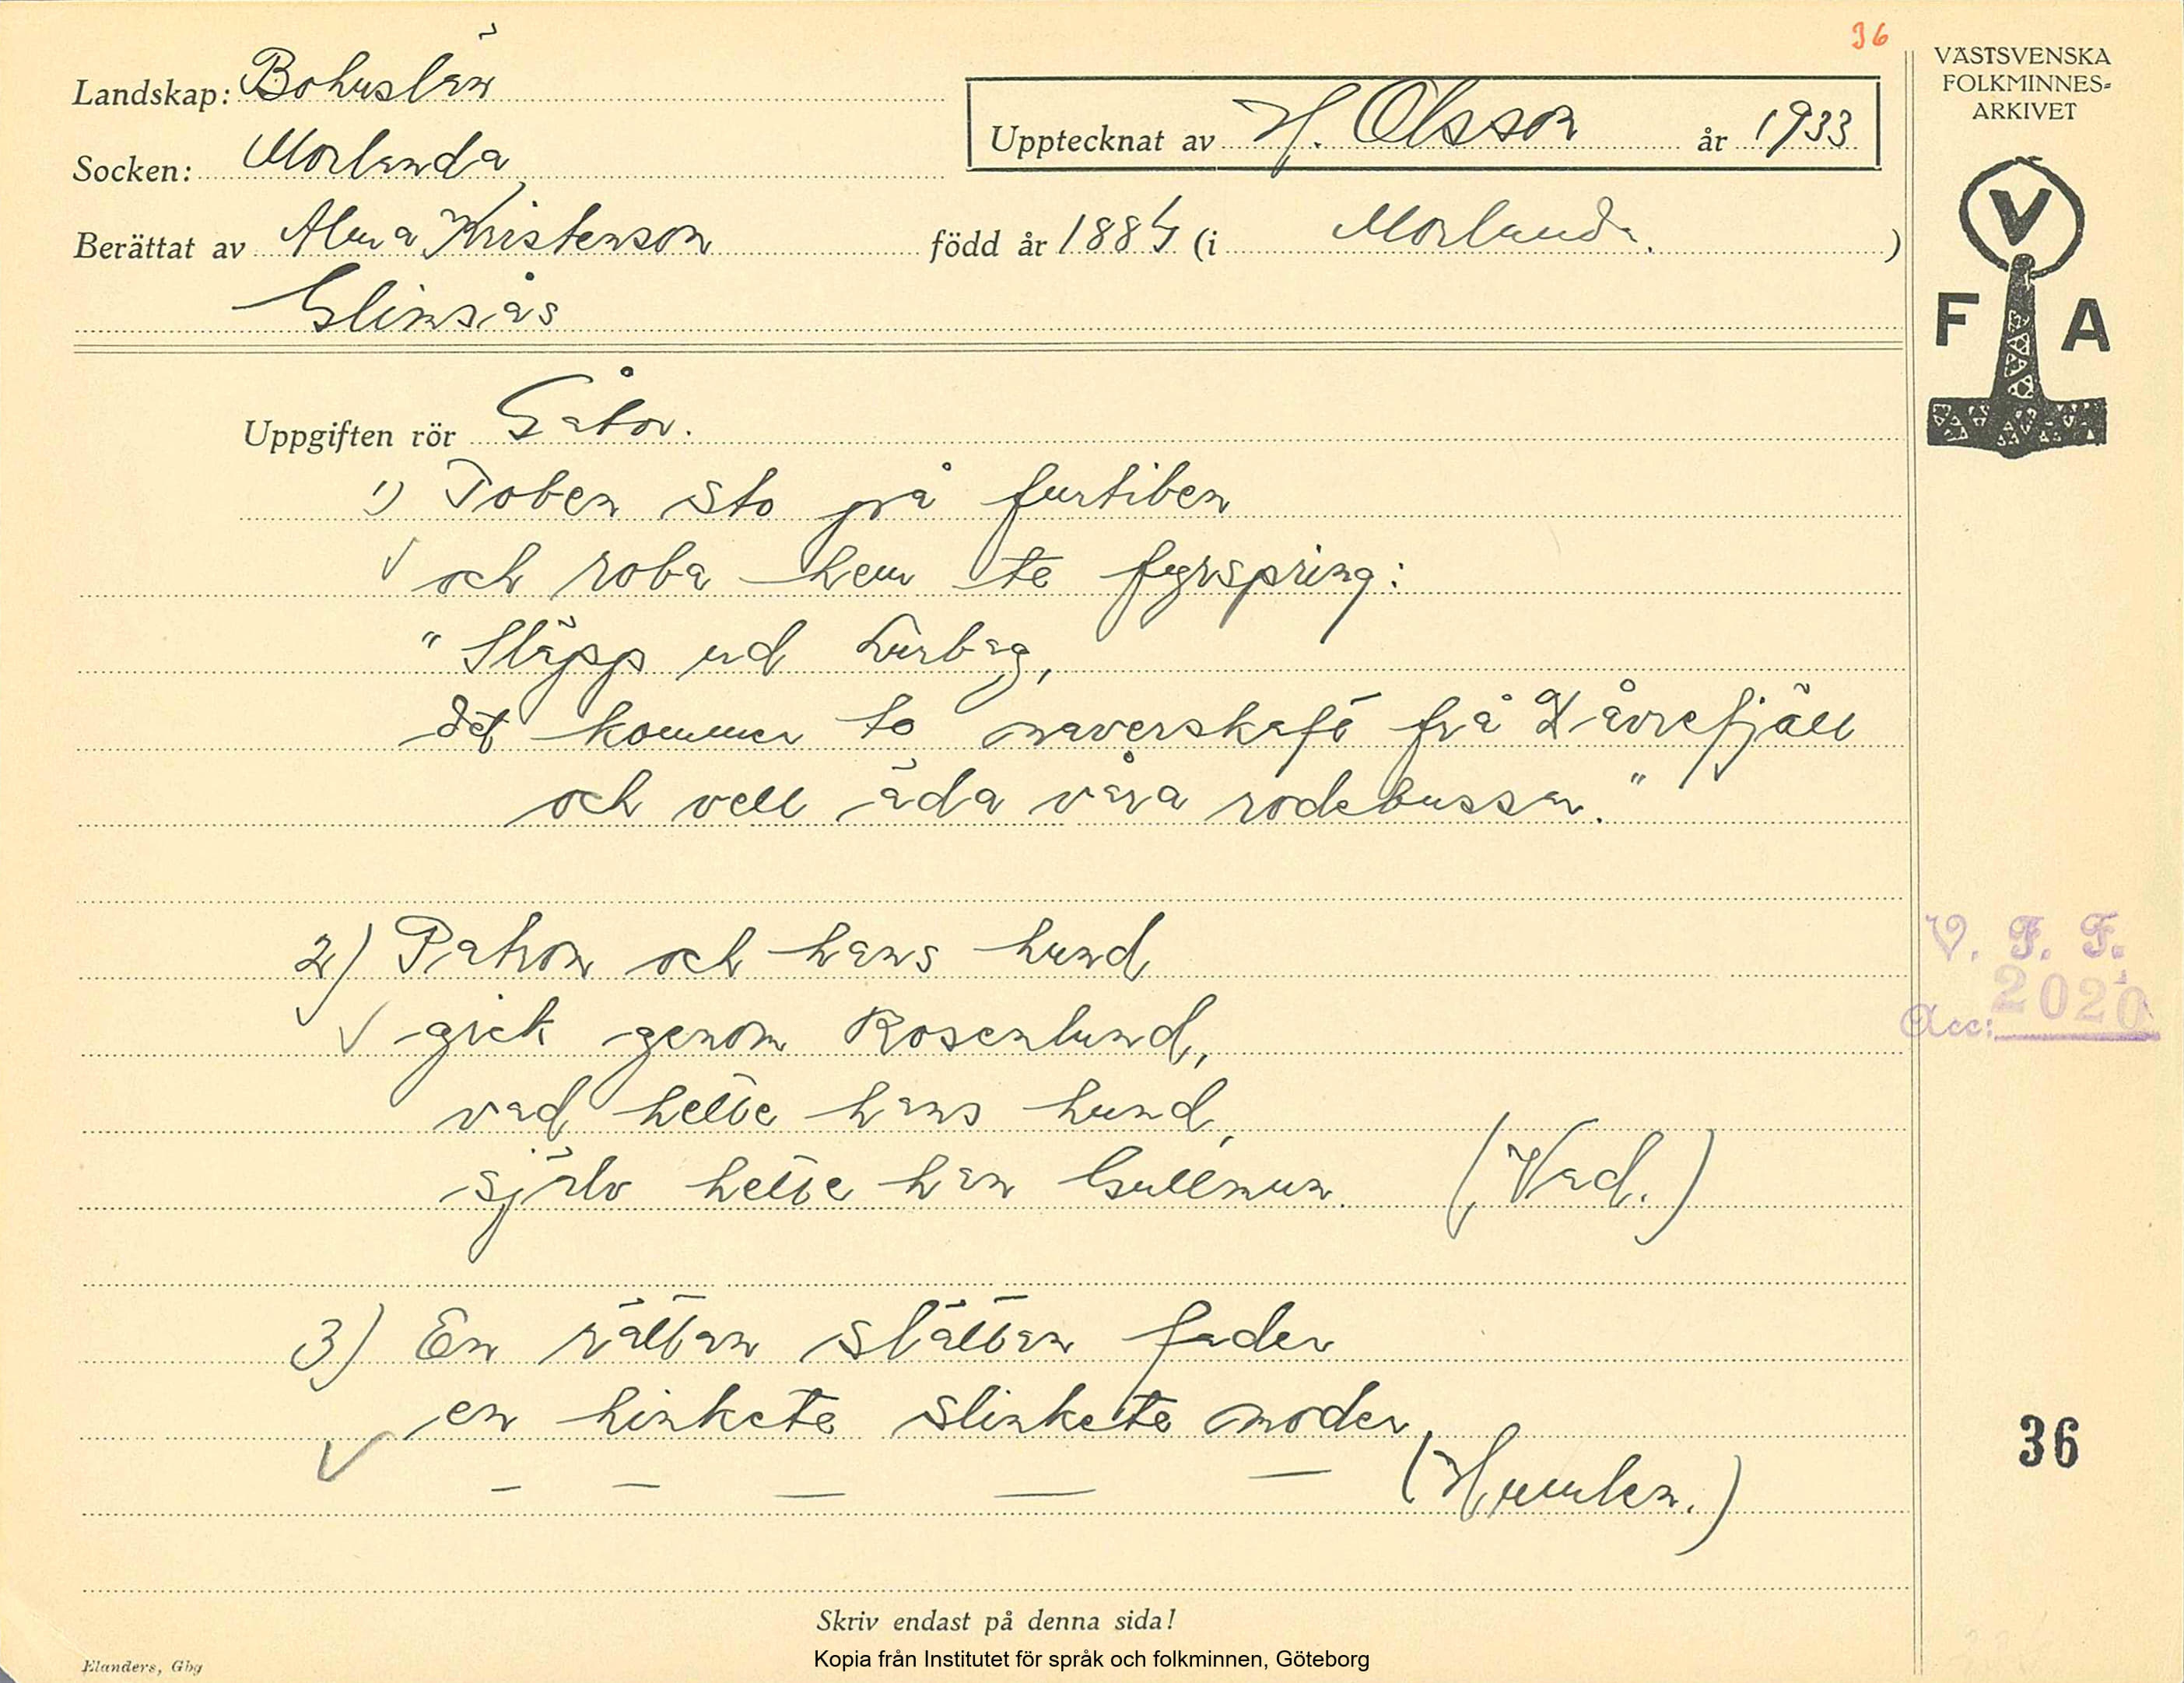 36
Landskap: Bohuslän
Socken: Morlanda
Upptecknat av H. Olsson år 1933
Berättat av Alma Kristenson född år 1884 (i Morlanda.)
Glimsås
VÄSTSVENSKA
FOLKMINNES-
ARKIVET
V
F A
Uppgiften rör Gåtor.
1) Toben sto på furtiben
och roba hem te fyrspring:
"Släpp ud Lurbag,
det kommer to naverskaft från Dåvrefjäll
och vell äda våra rodebussar."
2) Patron och hans hund
gick genom Rosenlund,
vad hette hans hund,
själv hette han Gullmun. (Vad.)
3) En rättan slättan fader
en hinkete slinkete moder
— — — — — (Humlen.)
V. F. F.
Acc: 2020
36
Skriv endast på denna sida!
Kopia från Institutet för språk och folkminnen, Göteborg
Elanders, Gbg